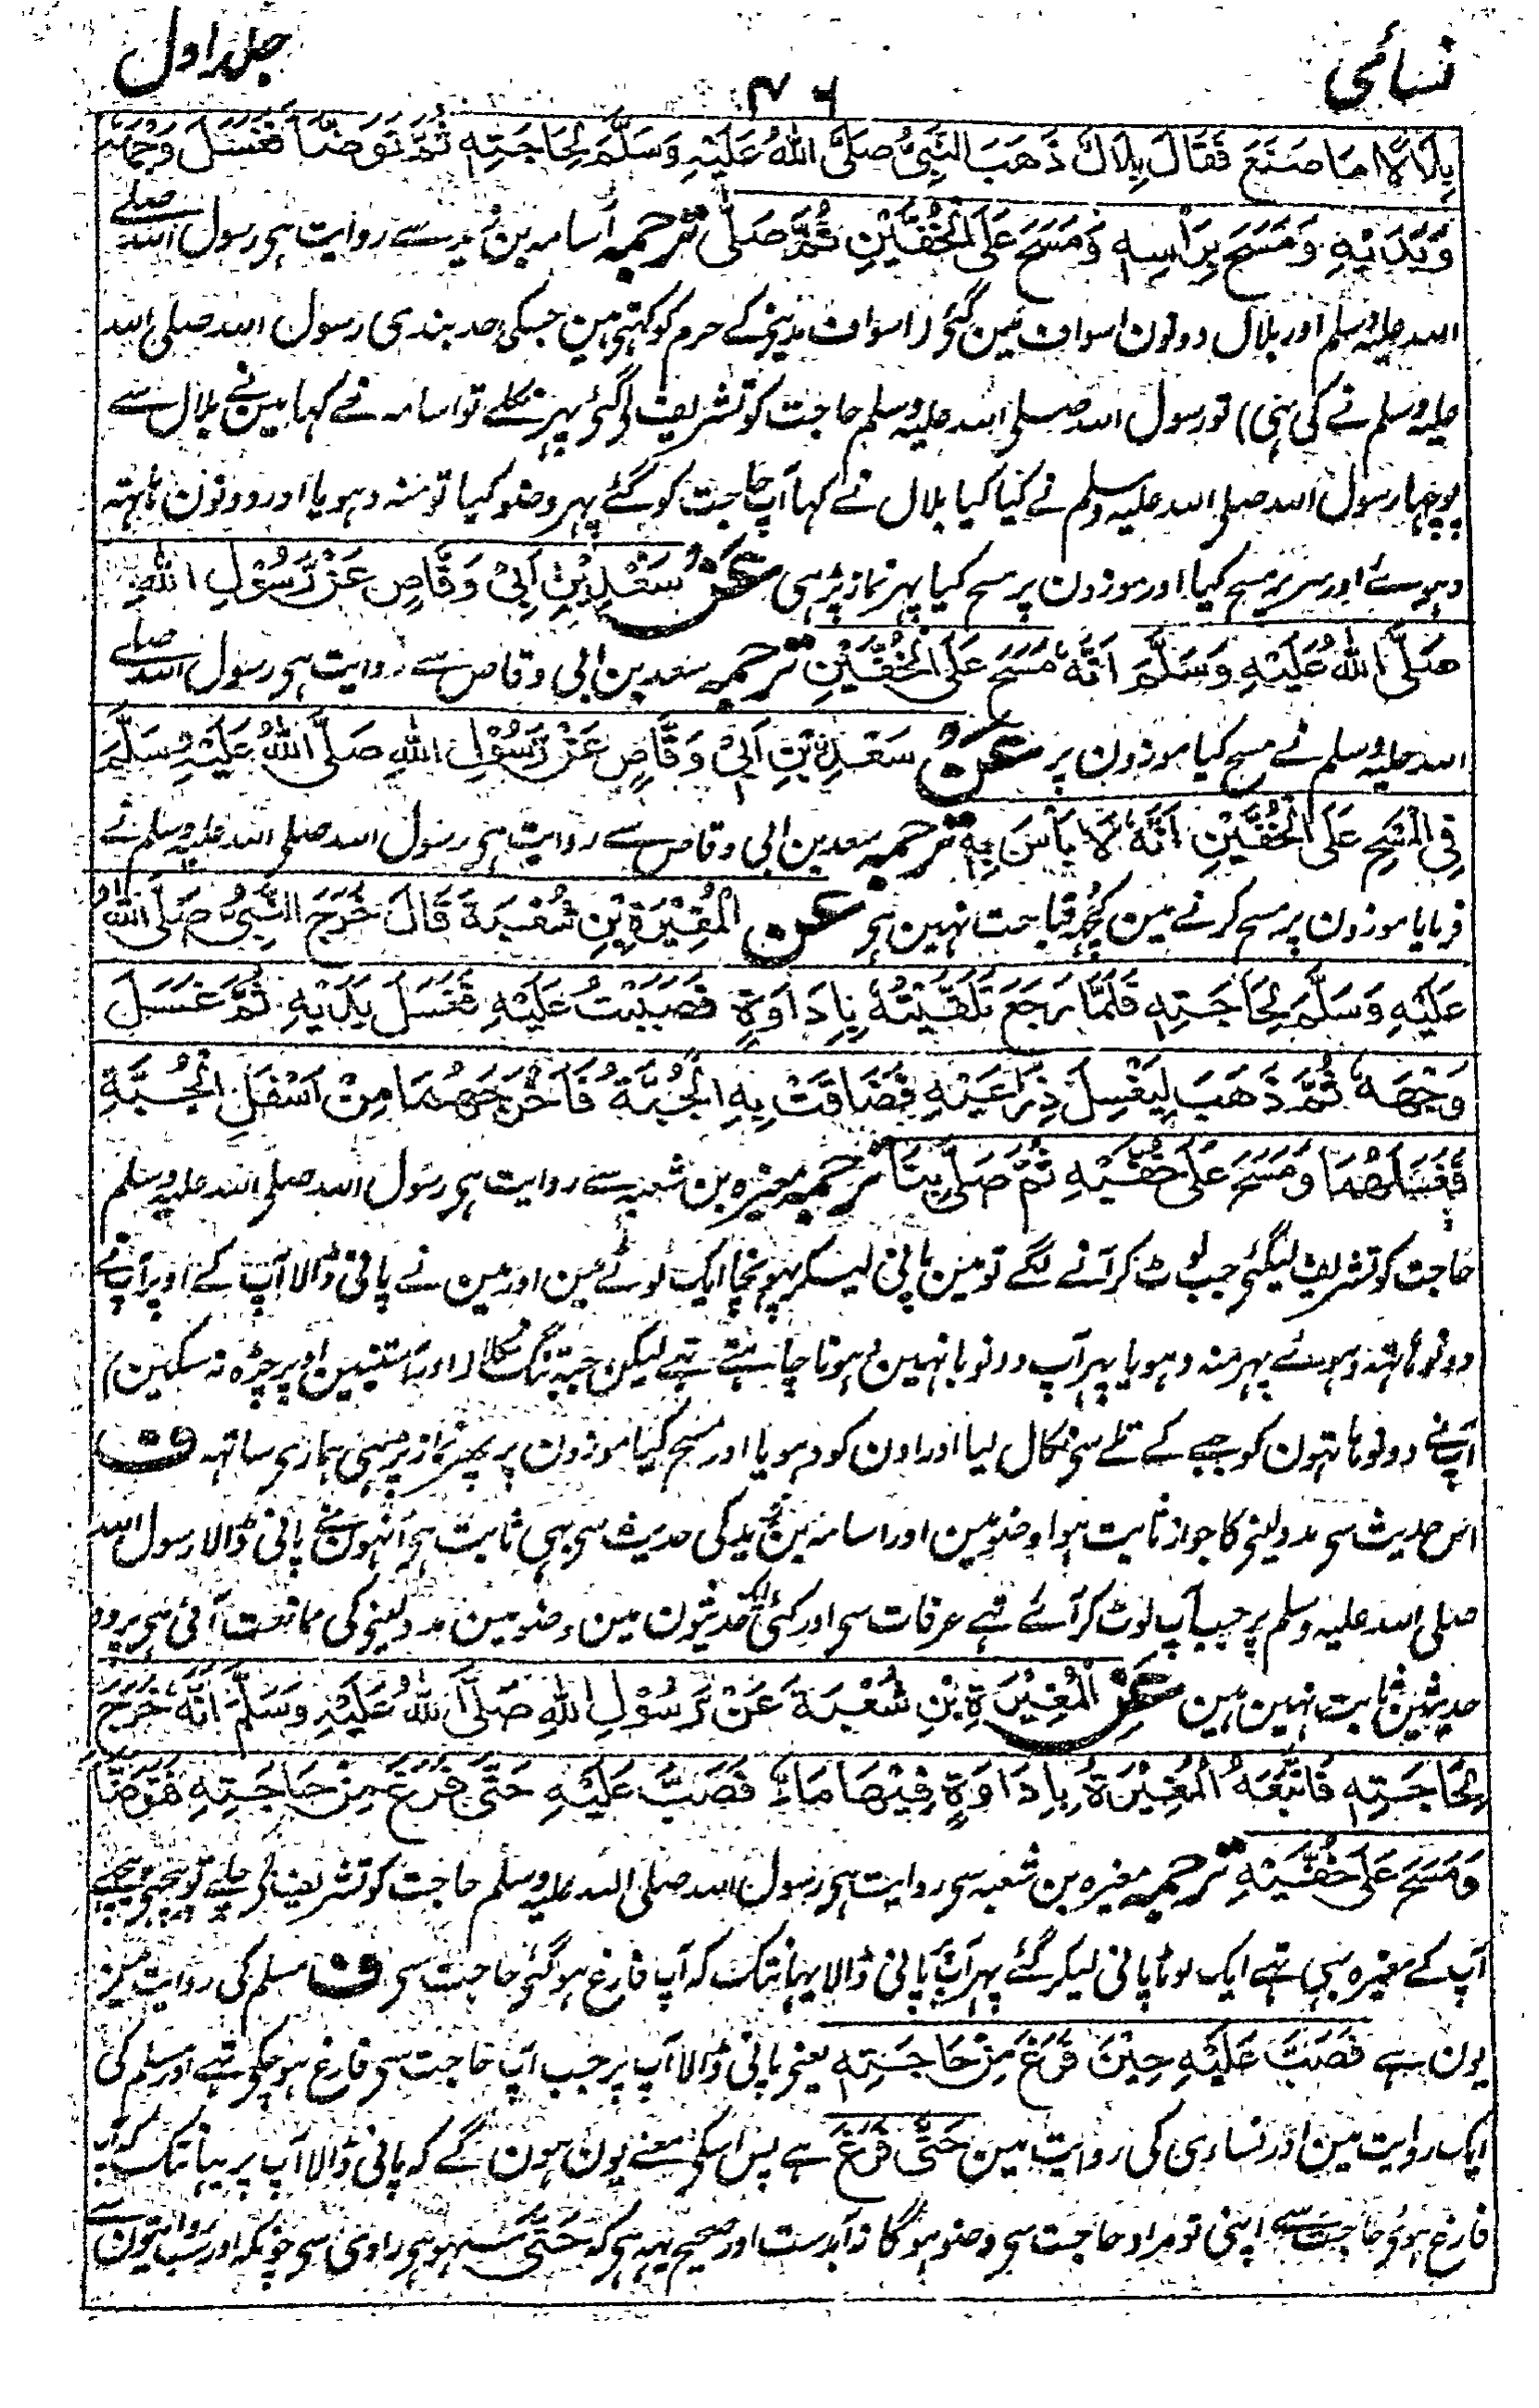 نسائی
جلد اول
۴۶
بِلَالًا مَا صَنَعَ فَقَالَ بِلَالٌ ذَهَبَ النَّبِيُّ صَلَّى اللهُ عَلَيْهِ وَسَلَّمَ لِحَاجَتِهِ ثُمَّ تَوَضَّأَ فَغَسَلَ وَجْهَهُ
وَيَدَيْهِ وَمَسَحَ بِرَأْسِهِ وَمَسَحَ عَلَى الْخُفَّيْنِ ثُمَّ صَلَّى ترجمہ اسامہ بن زید سے روایت ہی رسول اللہ صلے
اللہ علیہ وسلم اور بلال دونون اسواف مین گئی (اسواف مدینی کے حرم کو کہتی ہین جسکی حد بندی رسول اللہ صلی اللہ
علیہ وسلم نے کی ہتی) تو رسول اللہ صلی اللہ علیہ وسلم حاجت کو تشریف لی گئی پہر نکلے تو اسامہ نے کہا مین نے بلال سے
پوچہا رسول اللہ صلی اللہ علیہ وسلم نے کیا کیا بلال نے کہا آپ حاجت کو گئے پہر وضو کیا تو منہ دہویا اور دونون ہاتہہ
دہوے اور سر پر مسح کیا اور موزون پر مسح کیا پہر نماز پڑہی عَنْ سَعْدِ بْنِ أَبِيْ وَقَّاصٍ عَنْ رَسُوْلِ اللهِ
صَلَّى اللهُ عَلَيْهِ وَسَلَّمَ اَنَّهُ مَسَحَ عَلَى الْخُفَّيْنِ ترجمہ سعد بن ابی وقاص سے روایت ہی رسول اللہ صلے
اللہ علیہ وسلم نے مسح کیا موزون پر عَنْ سَعْدِ بْنِ اَبِيْ وَقَّاصٍ عَنْ رَسُوْلِ اللهِ صَلَّى اللهُ عَلَيْهِ وَسَلَّمَ
فِي الْمَسْحِ عَلَى الْخُفَّيْنِ اَنَّهُ لَا بَأْسَ بِهِ ترجمہ سعد بن ابی وقاص سے روایت ہی رسول اللہ صلی اللہ علیہ وسلم نے
فرمایا موزون پر مسح کرنے مین کچہہ قباحت نہین ہی عن الْمُغِيْرَةِ بْنِ شُعْبَةَ قَالَ خَرَجَ النَّبِيُّ صَلَّى اللهُ
عَلَيْهِ وَسَلَّمَ لِحَاجَتِهِ فَلَمَّا رَجَعَ تَلَقَّيْتُهُ بِاِدَاوَةٍ فَصَبَبْتُ عَلَيْهِ فَغَسَلَ يَدَيْهِ ثُمَّ غَسَلَ
وَجْهَهُ ثُمَّ ذَهَبَ لِيَغْسِلَ ذِرَاعَيْهِ فَضَاقَتْ بِهِ الْجُبَّةُ فَاَخْرَجَهُمَا مِنْ اَسْفَلِ الْجُبَّةِ
فَغَسَلَهُمَا وَمَسَحَ عَلَى خُفَّيْهِ ثُمَّ صَلَّى بِنَا ترجمہ مغیرہ بن شعبہ سے روایت ہی رسول اللہ صلی اللہ علیہ وسلم
حاجت کو تشریف لیگئی جب لوٹ کر آنے لگے تو مین پانی لیکر پہونچا ایک لوٹے مین اور مین نے پانی ڈالا آپ کے اوپر آپ نے
دونو ہاتہہ دہوے پہر منہ دہویا پہر آپ دونو بانہین دہونا چاہتے تہے لیکن جبہ تنگ نکلا (اور آستینین اوپر چڑہ نہ سکین)
آپ نے دونو ہاتہون کو جبے کے تلے سی نکال لیا اور اون کو دہویا اور مسح کیا موزون پر پھر نماز پڑہی ہماری ساتہہ ف
اس حدیث سی مدد لینی کا جواز ثابت ہوا وضو مین اور اسامہ بن زید کی حدیث سی بہی ثابت ہی انہون نے پانی ڈالا رسول اللہ
صلی اللہ علیہ وسلم پر جب آپ لوٹ کر آئے تہے عرفات سی اور کئی ایک حدیثون مین وضو مین مدد لینی کی ممانعت آئی ہی پر وہ
حدیثین ثابت نہین ہین عَنْ الْمُغِيْرَةِ بْنِ شُعْبَةَ عَنْ رَسُوْلِ اللهِ صَلَّى اللهُ عَلَيْهِ وَسَلَّمَ اَنَّهُ خَرَجَ
لِحَاجَتِهِ فَاتَّبَعَهُ الْمُغِيْرَةُ بِاِدَاوَةٍ فِيْهَا مَاءٌ فَصَبَّ عَلَيْهِ حَتَّى فَرَغَ مِنْ حَاجَتِهِ فَتَوَضَّأَ
وَمَسَحَ عَلَى خُفَّيْهِ ترجمہ مغیرہ بن شعبہ سی روایت ہی رسول اللہ صلی اللہ علیہ وسلم حاجت کو تشریف لی چلے تو پیچہی پیچہے
آپ کے مغیرہ بہی تہے ایک لوٹا پانی لیکر گئے پہر آپ پر پانی ڈالا یہانتک کہ آپ فارغ ہو گئی حاجت سی ف مسلم کی روایت مین
یون ہے فَصَبَّ عَلَيْهِ حِيْنَ فَرَغَ مِنْ حَاجَتِهِ یعنی پانی ڈالا آپ پر جب آپ حاجت سی فارغ ہو چکی تہے اور مسلم کی
ایک روایت مین اور نسائی کی روایت مین حَتَّى فَرَغَ ہے پس اسکی معنے یون ہون گے کہ پانی ڈالا آپ پر یہانتک کہ آپ
فارغ ہوئی حاجت سے اپنی تو مراد حاجت سی وضو ہو گا نہ آبدست اور صحیح یہہ ہی کہ حَتَّى سہو ہی راوی سی چونکہ اور سب روایتون سے